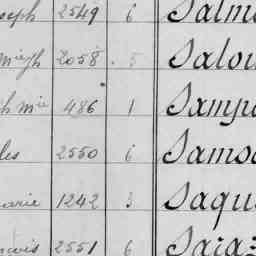 seph 2549 6 Salm
miyh 2058 5 Salou
h mie 486 1 Samp
les 2550 6 Samso
arie 1242 3 Saqu
ncois 2551 6 Saraz